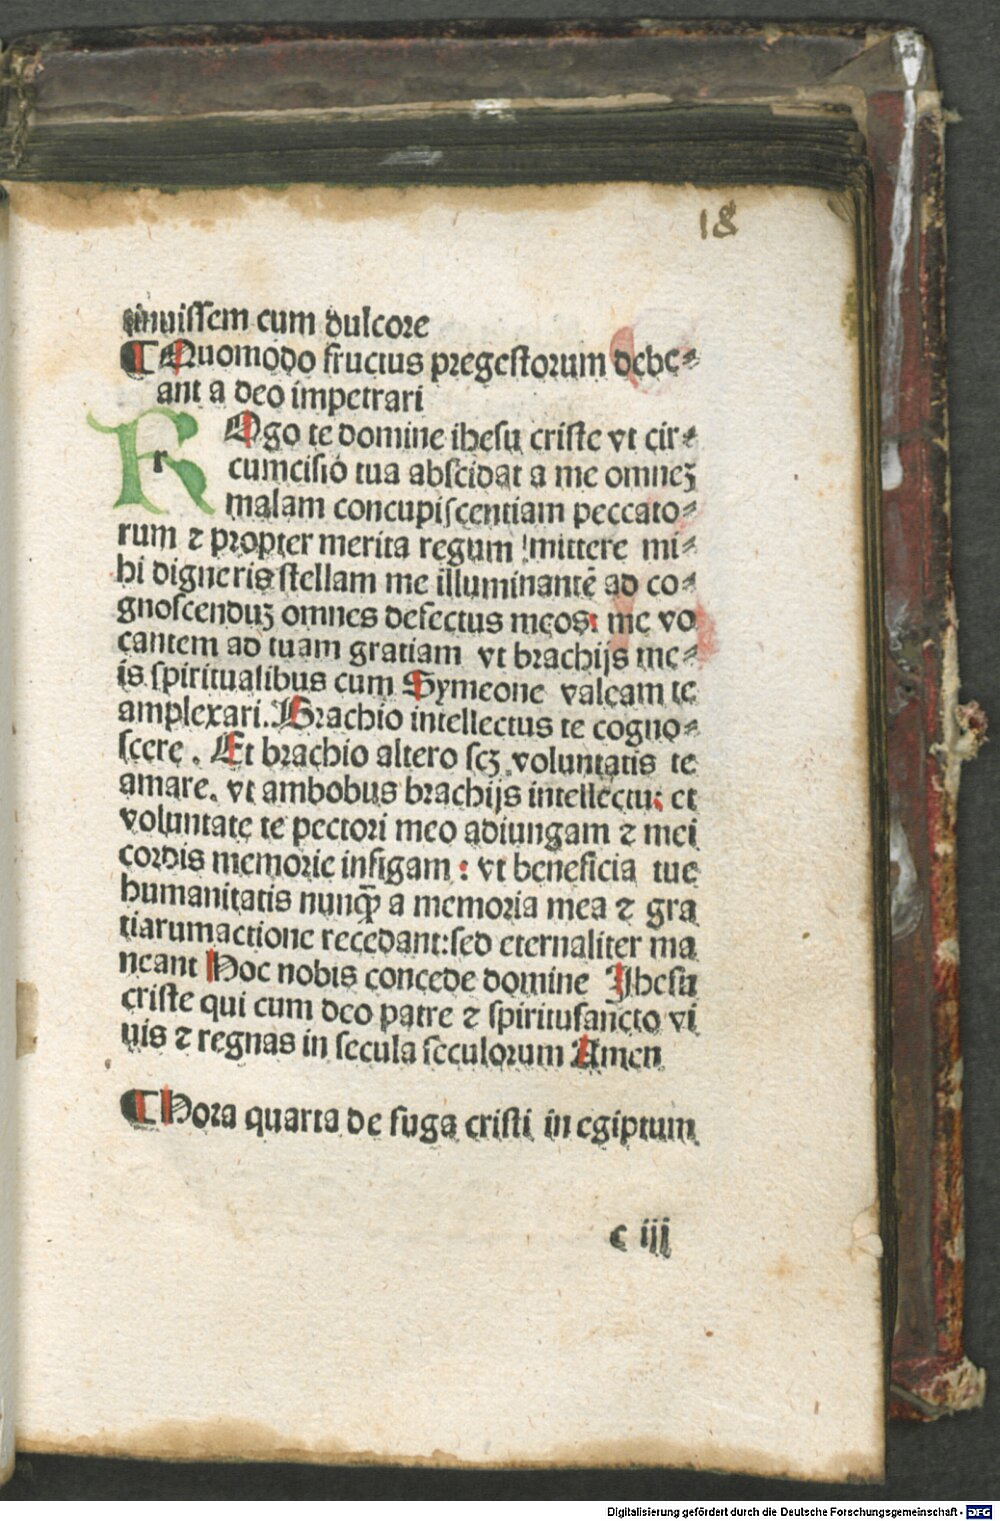 18
inuissem cum dulcore
¶ Quomodo fructus pregestorum debe⸗
ant a deo impetrari
R r Ogo te domine ihesu criste vt cir⸗
cumcisiõ tua abscidat a me omneꝫ
malam concupiscentiam peccato⸗
rum ⁊ propter merita regum !mittere mi⸗
hi digneris stellam me illuminantẽ ad co⸗
gnoscenduꝫ omnes defectus meos: me vo
cantem ad tuam gratiam vt brachijs me⸗
is spiritualibus cum Symeone valeam te
amplexari. Brachio intellectus te cogno⸗
scere. Et brachio altero scꝫ voluntatis te
amare. vt ambobus brachijs intellectu: et
voluntate te pectori meo adiungam ⁊ mei
cordis memorie infigam: vt beneficia tue
humanitatis nunqꝫ̃ a memoria mea ⁊ gra
tiarumactione recedant: sed eternaliter ma
neant Hoc nobis concede domine Jhesu
criste qui cum deo patre ⁊ spiritusancto vi
uis ⁊ regnas in secula seculorum Amen
¶ Hora quarta de fuga cristi in egiptum
c iii
Digitalisierung gefördert durch die Deutsche Forschungsgemeinschaft - DFG